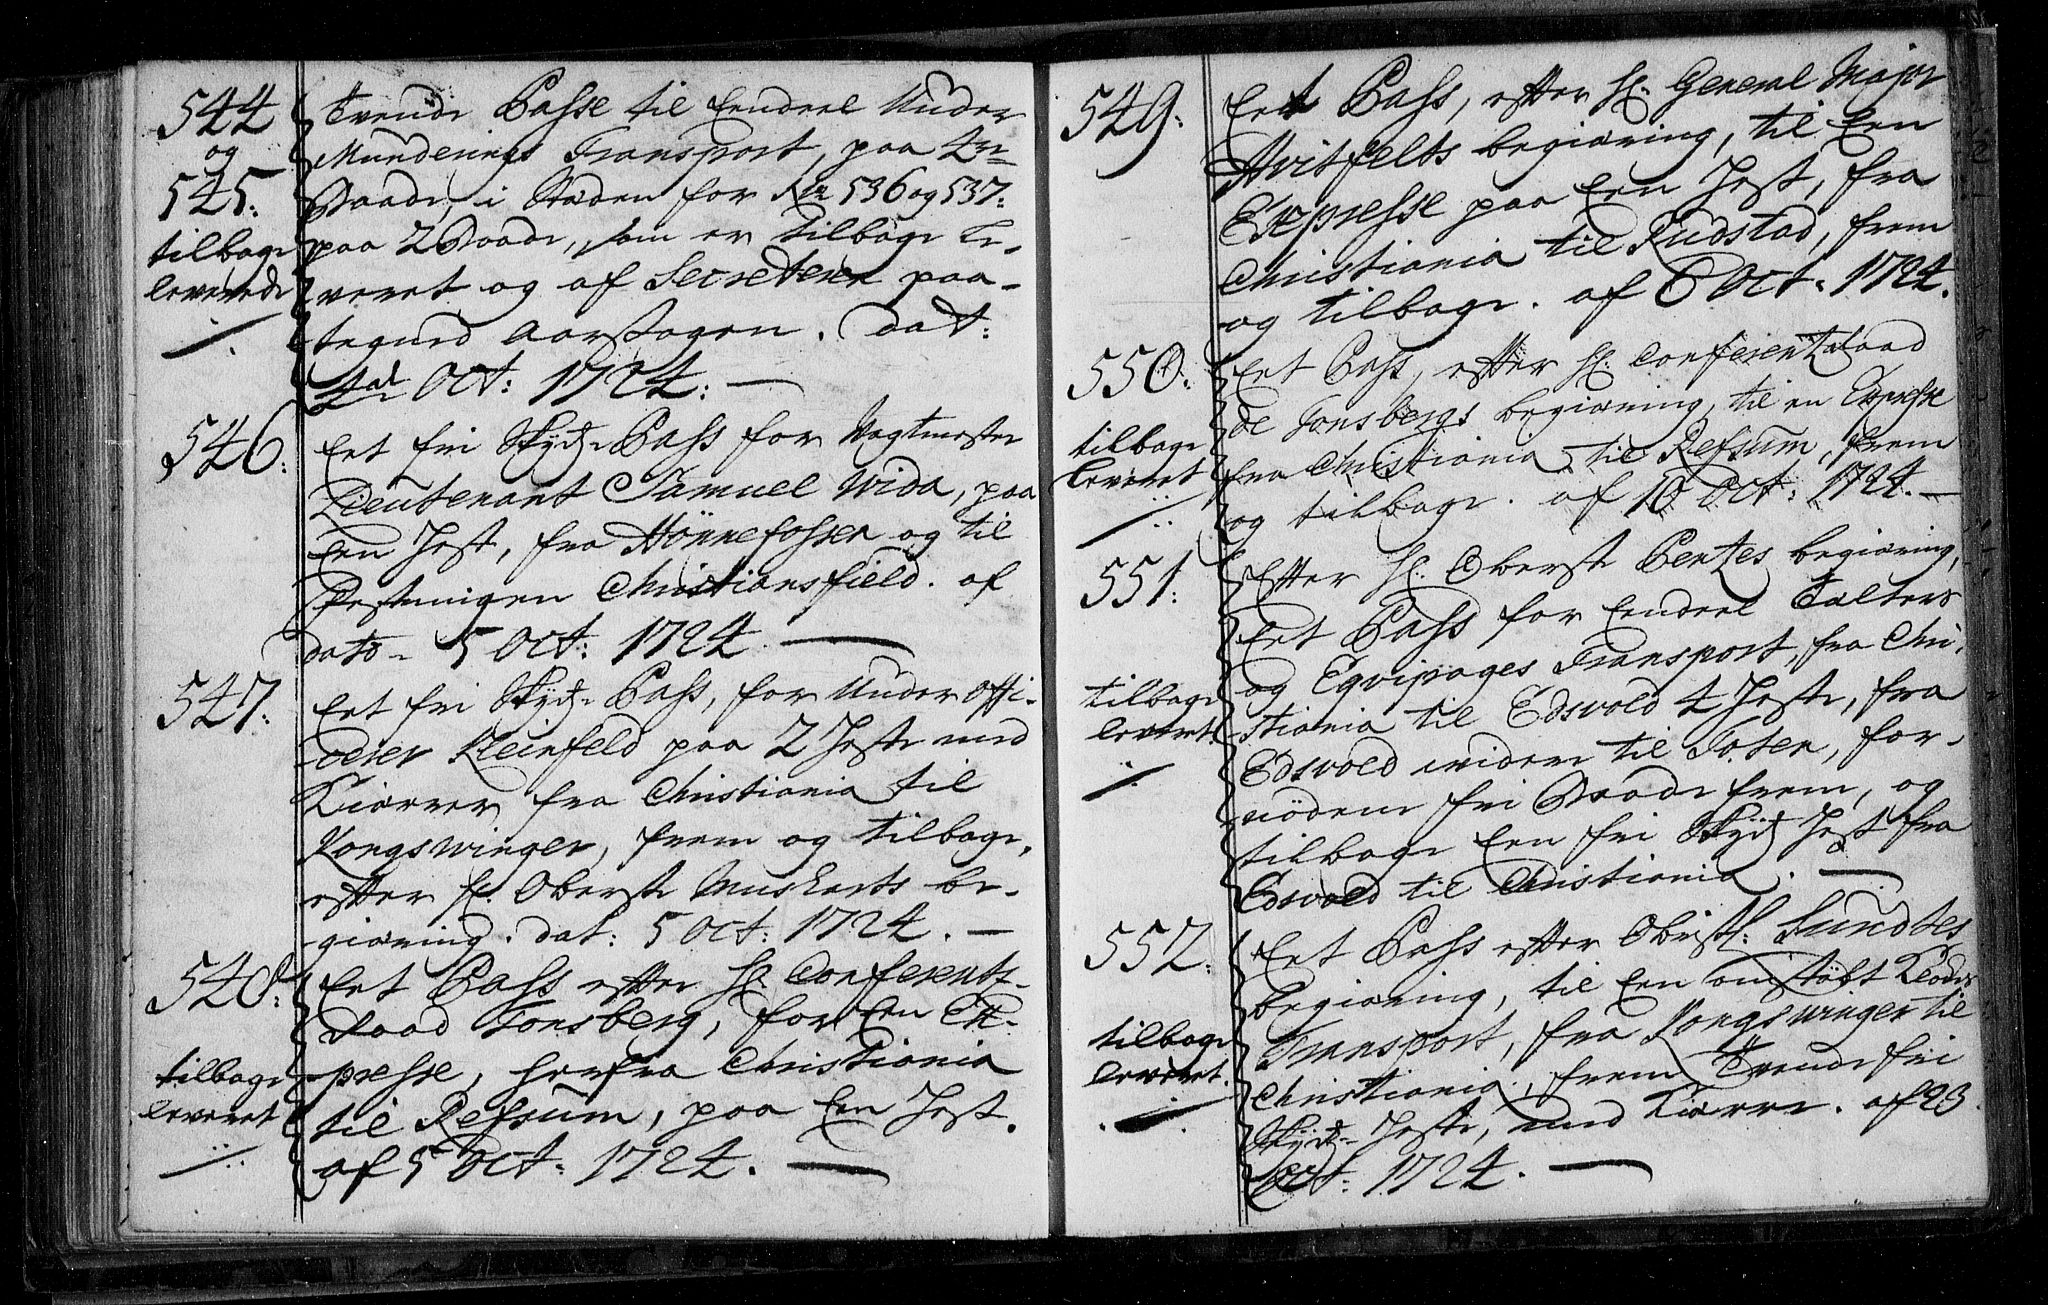 544
og
545:
tilbage
leverede
Tvende Passe til Eendeel Under
Munderings Transport, paa 4re
Baade, i Stæden for No 536 og 537:
paa 2 Baade, som er tilbage le-
veret og af Secreteren paa-
tegned Aarsagen. dat:
4de Oct: 1724. —
546:
Eet fri Skyds Pass for Vagtmester
Lieutenant Samuel Wida, paa
Een Hest, fra Hønnefossen og til
Festningen Christiansfield. af
dato 5 Oct: 1724. —
547:
Eet fri Skyds Pass, for Under Offi-
cerer Kleinfeld paa 2 Heste med
Kiærrer fra Christiania til
Kongswinger, frem og tilbage,
efter H. Oberste Muskerts be-
giæring. dat: 5 Oct: 1724. —
548:
tilbage
leveret
Eet Pass efter H. Conferentz-
Raad Tonsberg, for Een Ex-
presse, herfra Christiania
til Refsum, paa Een Hest.
af 5 Oct: 1724. —
549:
Eet Pass, efter H. General Major
Hvitfelts begiæring, til Een
Expresse paa Een Hest, fra
Christiania til Rudstad, frem
og tilbage. af 6 Oct. 1724.
550:
tilbage
leveret
Eet Pass, efter H. Conferentz Raad
de Tonsbergs begiæring, til en Expresse
fra Christiania til Refsum, frem
og tilbage. af 10 Oct: 1724. —
551:
tilbage
leveret.
Efter H. Oberst Pentzes begiæring,
Eet Pass for Eendeel Talters
og Eqvipages Transport, fra Chri-
stiania til Edsvold 4 Heste, fra
Edsvold widere til Toten, for-
nødene fri Baade frem, og
tilbage Een fri Skyds Hest fra
Edsvold til Christiania. —
552:
tilbage
leveret.
Eet Pass efter Obristl. Sundtes
begiæring, til Een omstøbt Klokes
Transport, fra Kongswinger til
Christiania, frem Tvende fri
Skyds Heste, med Kiærre. af 23
Oct: 1724. —